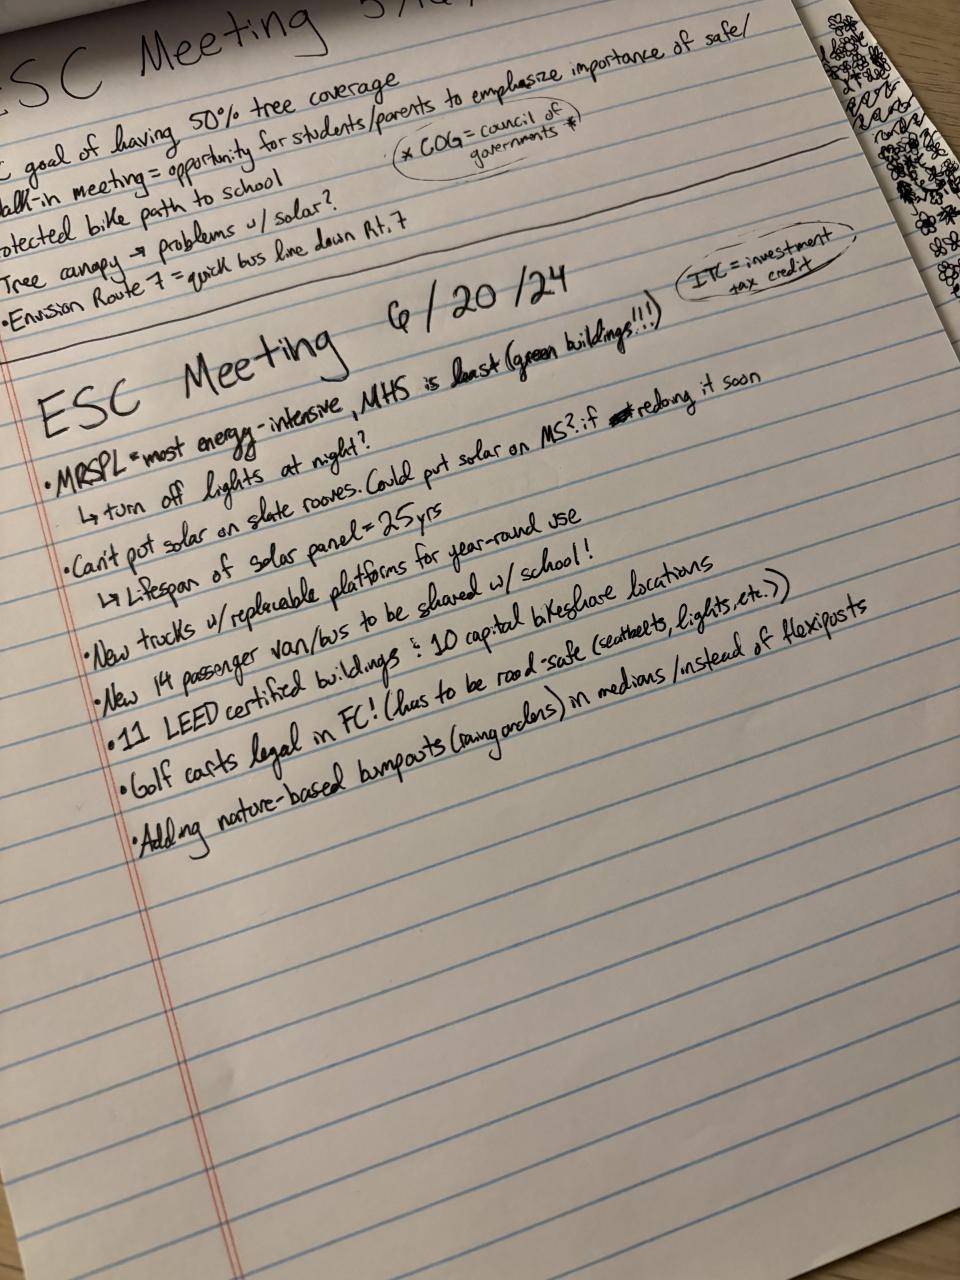 ESC Meeting
goal of having 50% tree coverage
walk-in meeting = opportunity for students/parents to emphasize importance of safe/
protected bike path to school
* COG = council of
governments *
Tree canopy → problems w/ solar?
• Envision Route 7 = quick bus line down Rt. 7
ESC Meeting 6/20/24
ITC = investment
tax credit
• MRSPL = most energy-intensive, MHS is least (green buildings!!!)
↳ turn off lights at night?
• Can't put solar on slate rooves. Could put solar on MS? if redoing it soon
↳ Lifespan of solar panel = 25 yrs
• New trucks w/ replaceable platforms for year-round use
• New 14 passenger van/bus to be shared w/ school!
• 11 LEED certified buildings & 10 capital bikeshare locations
• Golf carts legal in FC! (has to be road-safe (seatbelts, lights, etc.))
• Adding nature-based bumpouts (raingardens) in medians/instead of flexiposts